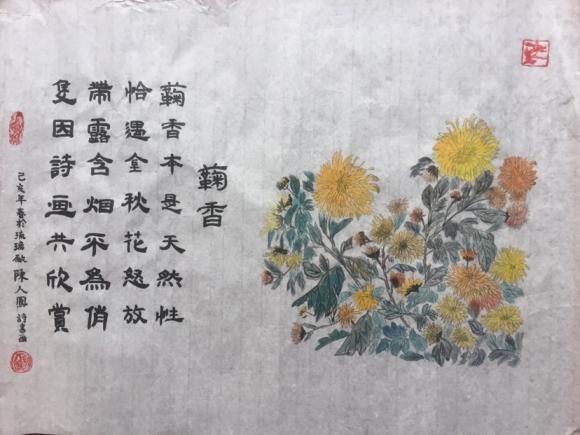 蘜香
蘜香本是天然性
恰遇金秋花怒放
帶露含烟不為俏
隻因詩画共欣賞
己亥年春於琉璃厰 陳人鳳 詩書画